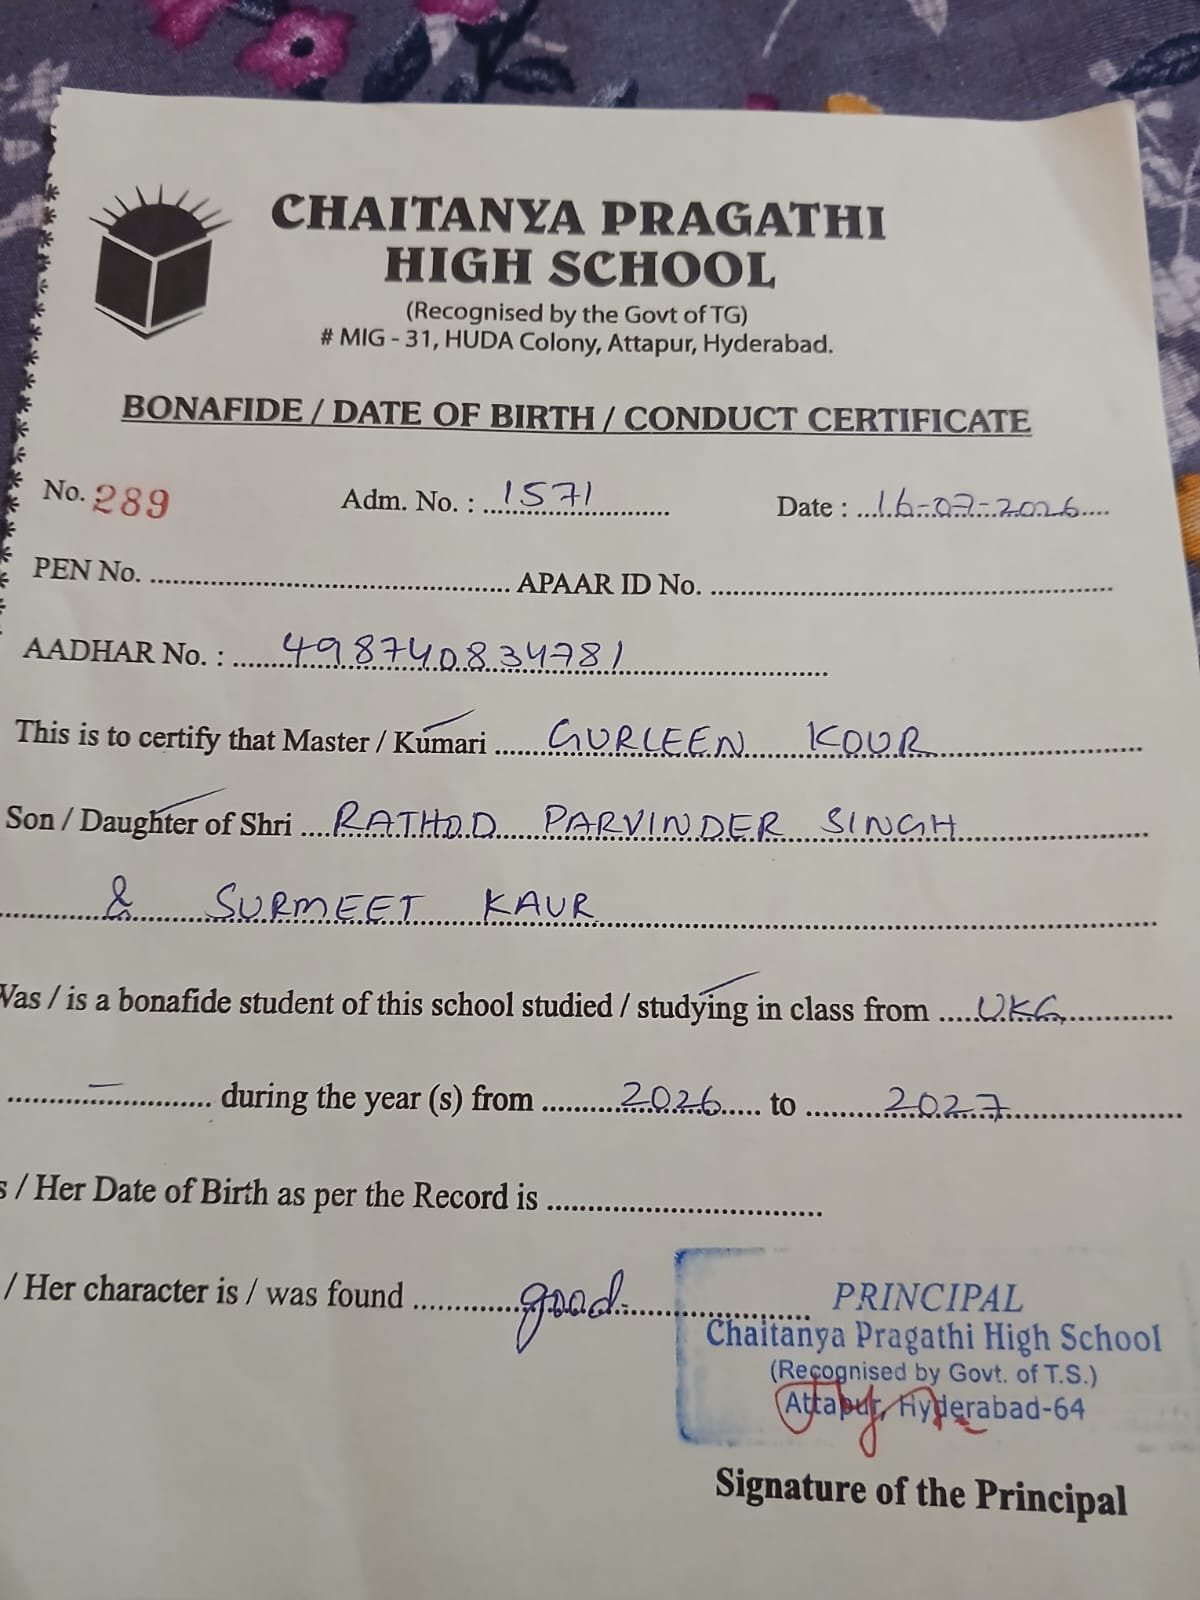 CHAITANYA PRAGATHI
HIGH SCHOOL
(Recognised by the Govt of TG)
# MIG - 31, HUDA Colony, Attapur, Hyderabad.
BONAFIDE / DATE OF BIRTH / CONDUCT CERTIFICATE
No. 289 Adm. No. : 1571 Date : 16-07-2026
PEN No. APAAR ID No.
AADHAR No. : 498740834781
This is to certify that Master / Kumari GURLEEN KOUR
Son / Daughter of Shri RATHOD PARVINDER SINGH
& SURMEET KAUR
Was / is a bonafide student of this school studied / studying in class from UKG
— during the year (s) from 2026 to 2027
s / Her Date of Birth as per the Record is
/ Her character is / was found good
PRINCIPAL
Chaitanya Pragathi High School
(Recognised by Govt. of T.S.)
Attapur, Hyderabad-64
Signature of the Principal